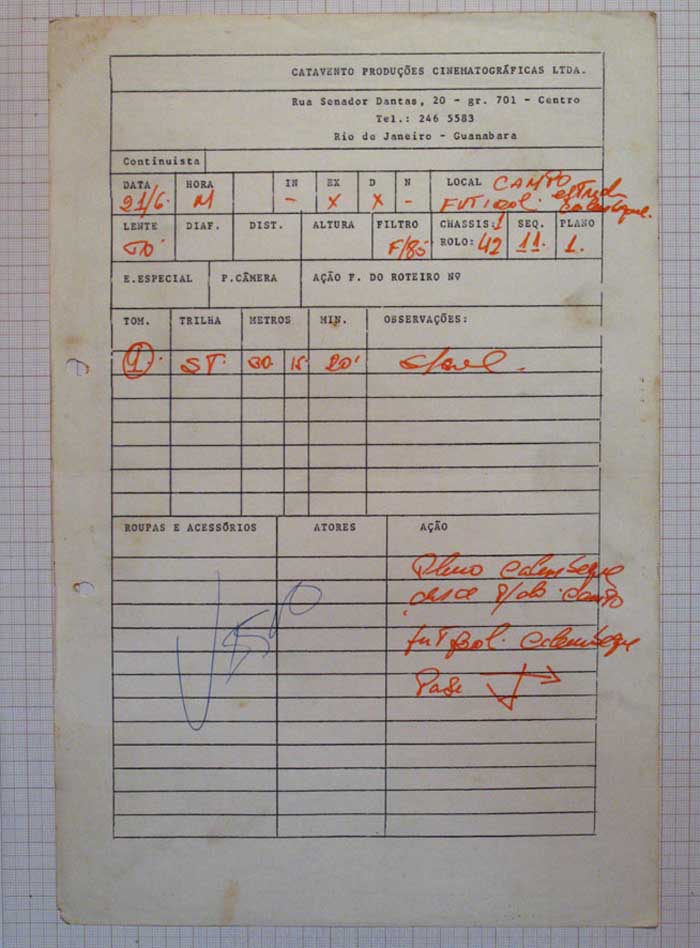 CATAVENTO PRODUÇÕES CINEMATOGRÁFICAS LTDA.
Rua Senador Dantas, 20 - gr. 701 - Centro
Tel.: 246 5583
Rio de Janeiro - Guanabara
Continuista
DATA HORA IN EX D N LOCAL CAMPO
21/6. M - X X - FUTIBOL.
LENTE DIAF. DIST. ALTURA FILTRO CHASSIS: 1 SEQ. PLANO
F/85 ROLO: 42 11. 1.
E.ESPECIAL P.CÂMERA AÇÃO F. DO ROTEIRO Nº
TOM. TRILHA METROS MIN. OBSERVAÇÕES:
1. ST. 30. 15. 20'
ROUPAS E ACESSÓRIOS ATORES AÇÃO
Plano
campo
futibol.